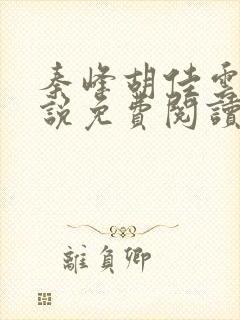 秦峰胡佳雲
說免費閱讀
離負卿